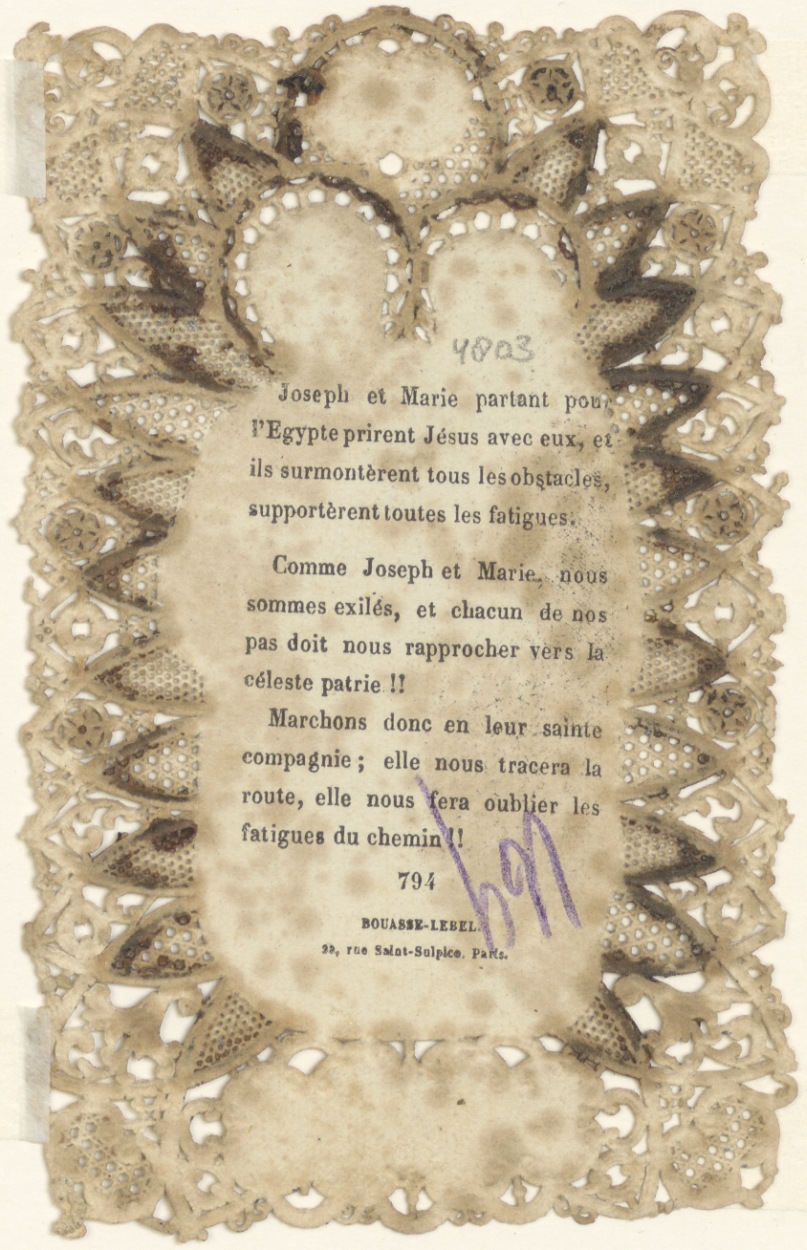 4803
Joseph et Marie partant pour
l'Egypte prirent Jésus avec eux, et
ils surmontèrent tous les obstacles,
supportèrent toutes les fatigues.
Comme Joseph et Marie, nous
sommes exilés, et chacun de nos
pas doit nous rapprocher vers la
céleste patrie !!
Marchons donc en leur sainte
compagnie ; elle nous tracera la
route, elle nous fera oublier les
fatigues du chemin !!
794
BOUASSE-LEBEL.
29, rue Saint-Sulpice, Paris.